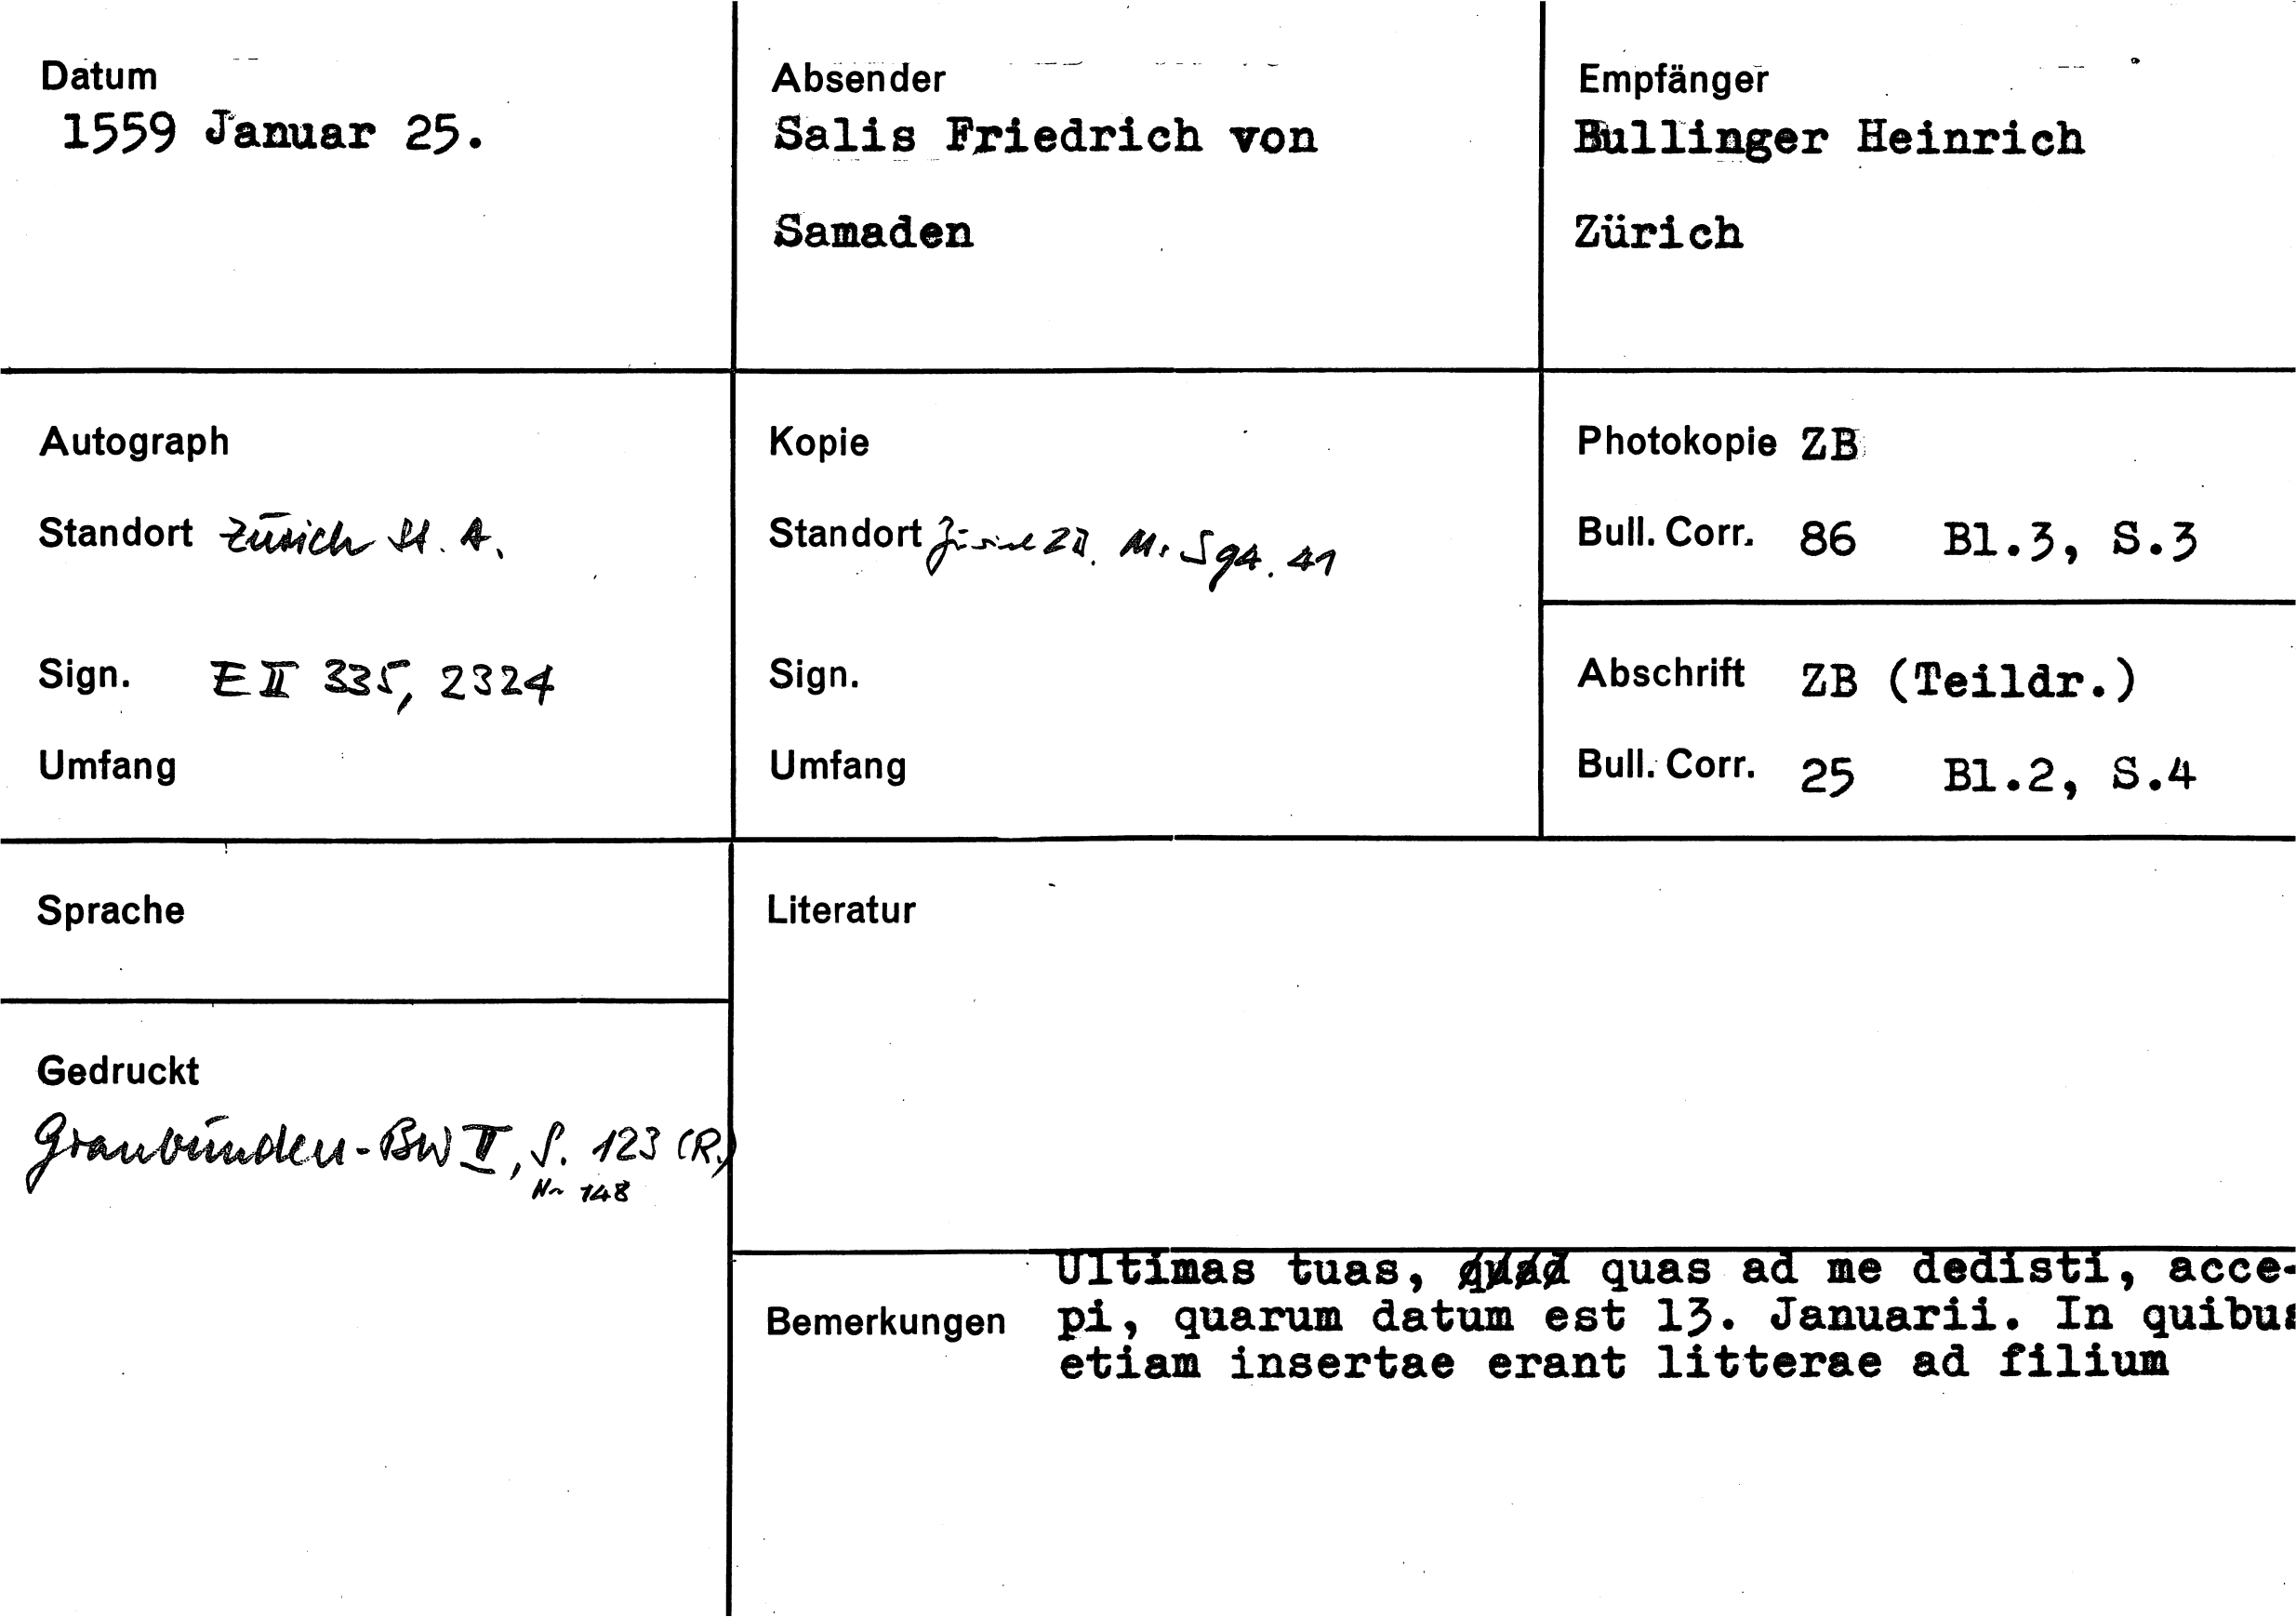 Datum
1559 Januar 25.
Absender
Salis Friedrich von
Samaden
Empfänger
Bullinger Heinrich
Zürich
Autograph
Standort Zürich St. A.
Sign. E II 335, 2324
Umfang
Kopie
Standort Zürich ZB. Ms S 94. 41
Sign.
Umfang
Photokopie ZB
Bull. Corr. 86 Bl.3, S.3
Abschrift ZB (Teildr.)
Bull. Corr. 25 Bl.2, S.4
Sprache
Literatur
Gedruckt
Graubünden-BW II, S. 123 (R.)
Nr 148
Bemerkungen
Ultimas tuas, quas ad me dedisti, acce-
pi, quarum datum est 13. Januarii. In quibus
etiam insertae erant litterae ad filium